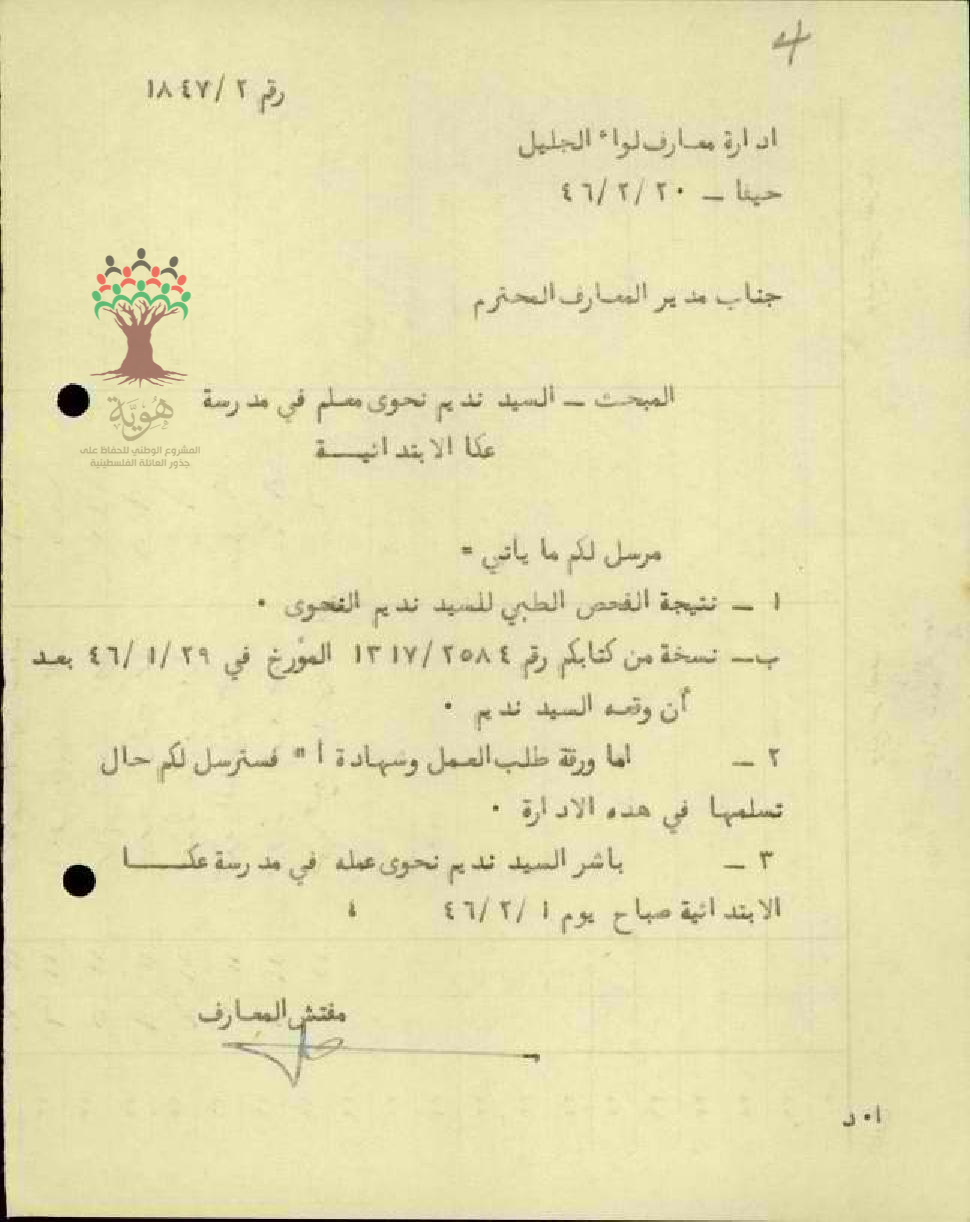 4
رقم ٢/ ١٨٤٧
ادارة معارف لواء الجليل
حيفا ــ ٤٦/٢/٢٠
جناب مدير المعارف المحترم
هُوِيَّة
المشروع الوطني للحفاظ على
جذور العائلة الفلسطينية
المبحث ــ السيد نديم نحوى معلم في مدرسة
عكا الابتدائيـــة
مرسل لكم ما ياتي =
ا ــ نتيجة الفحص الطبي للسيد نديم النحوى ٠
ب ــ نسخة من كتابكم رقم ١٣١٧/٢٥٨٤ المؤرخ في ٤٦/١/٢٩ بعد
أن وقعه السيد نديم ٠
٢ ــ اما ورقة طلب العمل وشهادة أ " فسترسل لكم حال
تسلمها في هذه الادارة ٠
٣ ــ باشر السيد نديم نحوى عمله في مدرسة عكــــا
الابتدائية صباح يوم ٤٦/٢/١ ،
مفتش المعارف
ا ٠ د